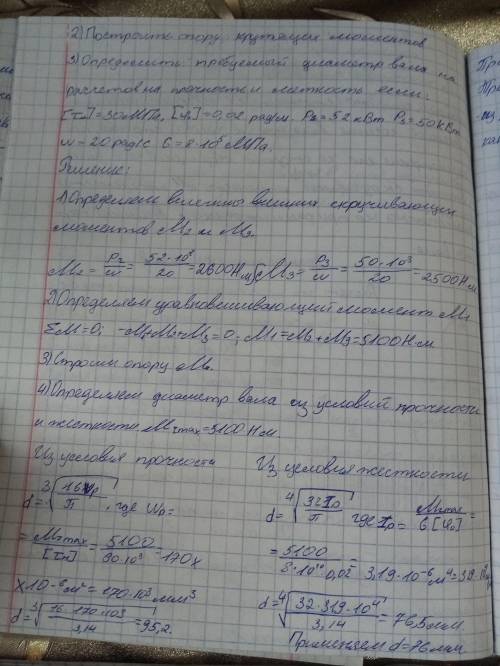 2) Построить эпюру крутящих моментов
3) Определить требуемый диаметр вала из
расчетов на прочность и жесткость если:
[τк]=30МПа, [φ₀]=0,02 рад/м. P₂=52 кВт P₃=50кВт
w=20 рад/с G=8·10⁵ МПа.
Решение:
1) Определяем величины внешних скручивающих
моментов M₂ и M₃.
M₂ = P₂/w = 52·10³/20 = 2600Нм; M₃ = P₃/w = 50·10³/20 = 2500Нм
2) Определяем уравновешивающий момент M₁
ΣM=0; -M₁+M₂+M₃=0; M₁=M₂+M₃=5100Н·м
3) Строим эпюру Mz
4) Определяем диаметр вала из условий прочности
и жесткости Mzmax=5100 Нм.
Из условия прочности
d=³√(16Wp/π), где Wp=
= Mzmax/[τк] = 5100/30·10³ = 170х
х10⁻⁶м³=170·10³мм³
d=³√(16·170·103/3,14)=95,2.
Из условия жесткости
d=⁴√(32Ip/π) где Ip= Mzmax/G[φ₀] =
= 5100/8·10¹⁰·0,02 = 3,19·10⁻⁶м⁴=319·10⁴
d=⁴√(32·319·10⁴/3,14)=76,5мм
Применяем d=76мм